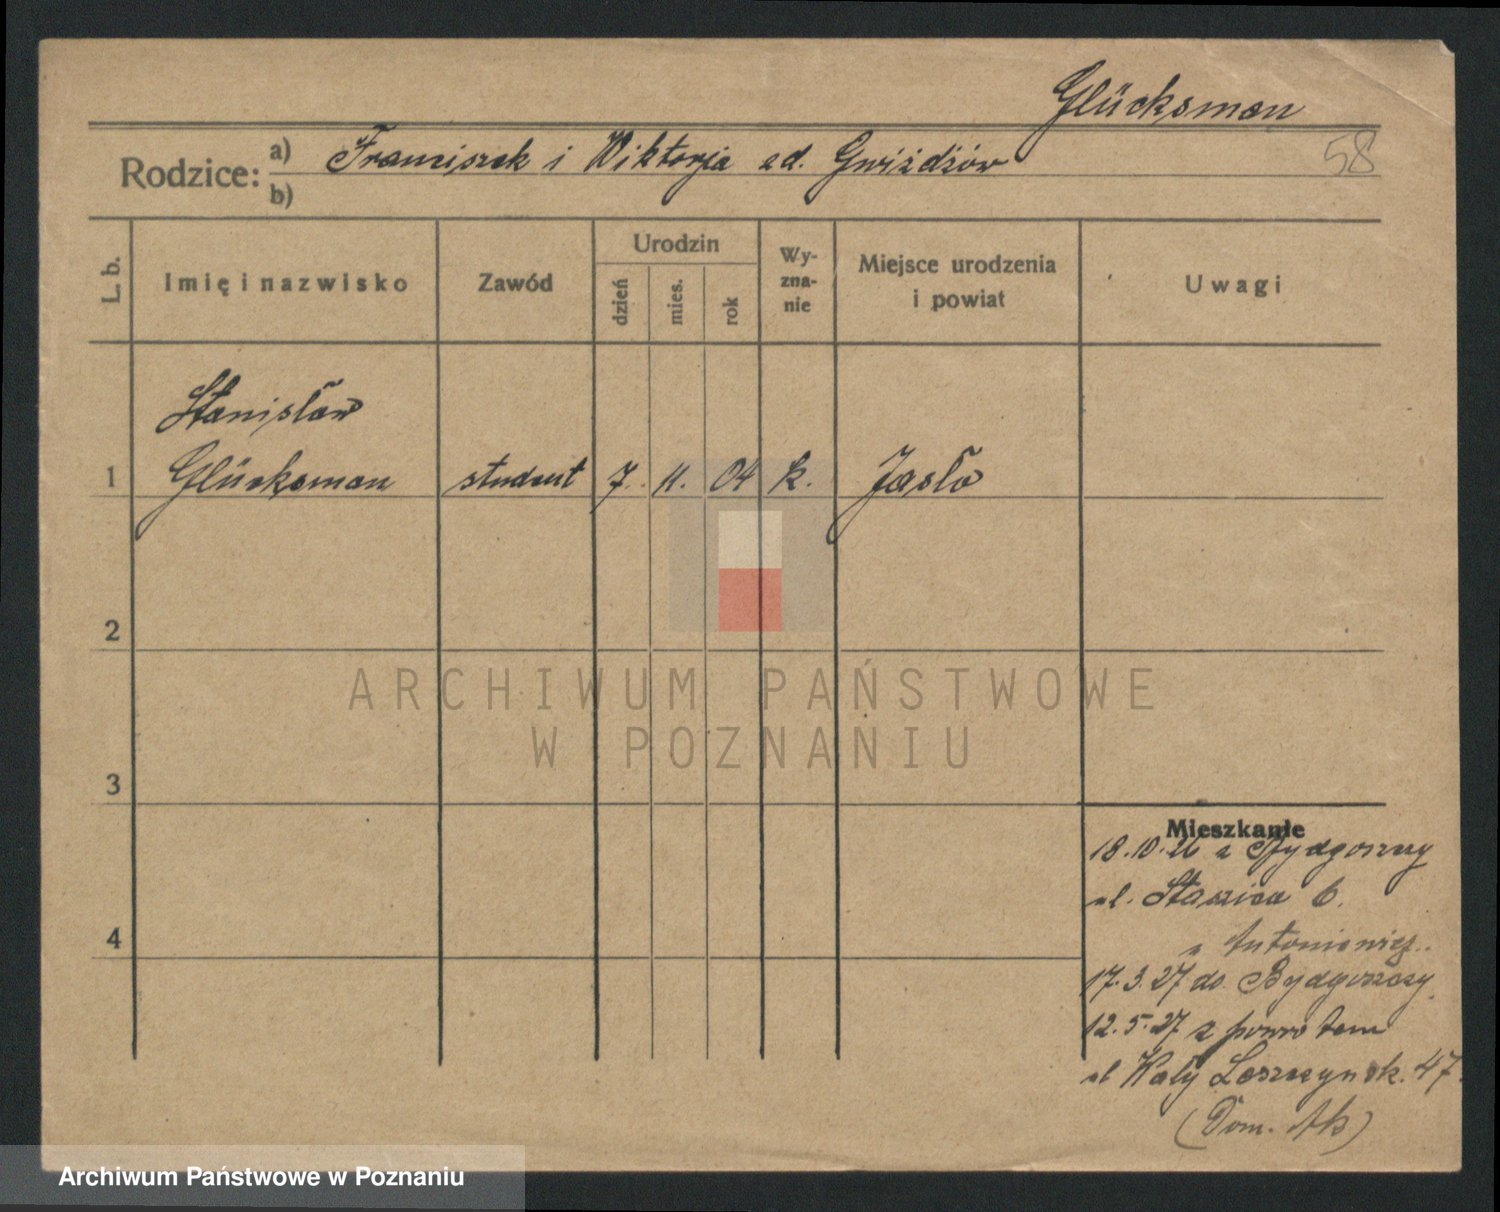 Glücksman
58
Rodzice: a) Franciszek i Wiktorja z d. Gwiżdżów
b)
L. b. Imię i nazwisko Zawód Urodzin dzień mies. rok Wyznanie Miejsce urodzenia i powiat Uwagi
Stanisław
1 Glücksman student 7. 11. 04 k. Jasło
2
3
4
Mieszkanie
18.10.26 z Bydgoszczy
ul. Staszica 6.
u Antoniewicz.
17.3.27 do Bydgoszczy
12.5.27 z powrotem
ul Wały Leszczyńsk. 47
(Dom. Ak)
ARCHIWUM PAŃSTWOWE
W POZNANIU
Archiwum Państwowe w Poznaniu